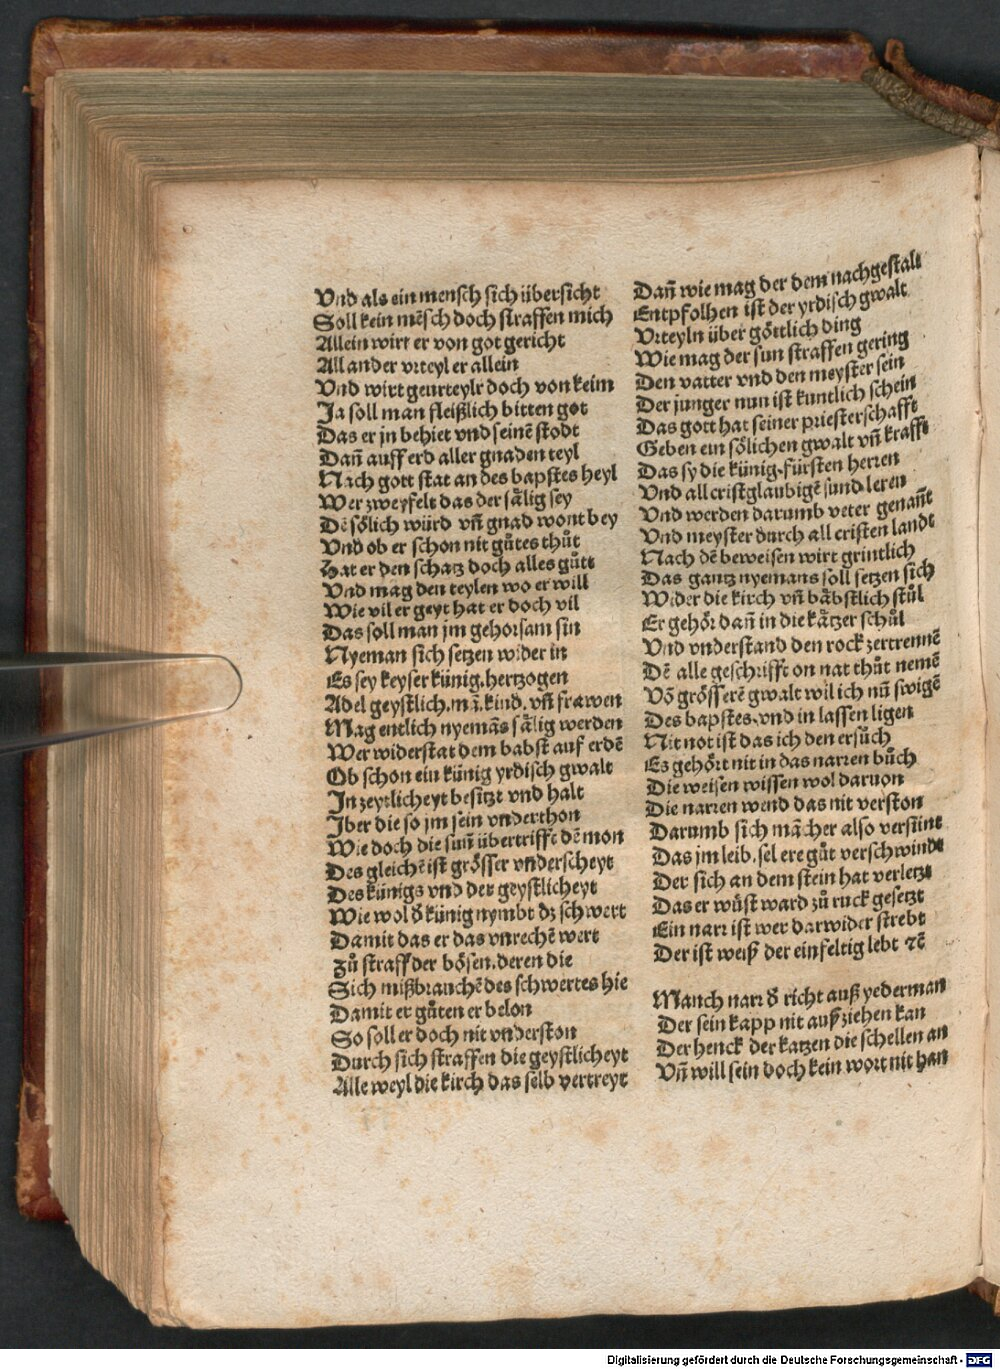 Vnd als ein mensch sich übersicht
Soll kein mēsch doch straffen mich
Allein wirt er von got gericht
All ander vrteyl er allein
Vnd wirt geurteylt doch von keim
Ja soll man fleißlich bitten got
Das er jn behiet vnd seinē stodt
Dañ auff erd aller gnaden teyl
Nach gott stat an des bapstes heyl
Wer zweyfelt das der sålig sey
Dē sölich würd vñ gnad wont bey
Vnd ob er schon nit gůtes thůt
Hat er den schatz doch alles gůtt
Vnd mag den teylen wo er will
Wie vil er geyt hat er doch vil
Das soll man jm gehorsam sin
Nyeman sich setzen wider in
Es sey keyser künig. hertzogen
Adel geystlich. mā. kind. vñ frawen
Mag entlich nyemās sålig werden
Wer widerstat dem babst auf erdē
Ob schon ein künig yrdisch gwalt
In zeytlicheyt besitzt vnd halt
Jber die so jm sein vnderthon
Wie doch die suñ übertrifft dē mon
Des gleichē ist grösser vnderscheyt
Des künigs vnd der geystlicheyt
Wie wol ð künig nymbt dz schwert
Damit das er das vnrechē wert
Zů straff der bösen. deren die
Sich mißbrauchē des schwertes hie
Damit er gůten er belon
So soll er doch nit vnderston
Durch sich straffen die geystlicheyt
Alle weyl die kirch das selb vertreyt
Dañ wie mag der dem nachgestalt
Entpfolhen ist der yrdisch gwalt
Vrteyln über göttlich ding
Wie mag der sun straffen gering
Den vatter vnd den meyster sein
Der junger nun ist kuntlich schein
Das gott hat seiner priesterschafft
Geben ein sölichen gwalt vñ krafft
Das sy die künig. fürsten herren
Vnd all cristglaubigē sund leren
Vnd werden darumb veter genañt
Vnd meyster durch all cristen landt
Nach dē beweisen wirt grintlich
Das gantz nyemans soll setzen sich
Wider die kirch vñ båbstlich stůl
Er gehör dañ in die kåtzer schůl
Vnd vnderstand den rock zertrennē
Dē alle geschrifft on nat thůt nemē
Vō grösserē gwalt wil ich nū swigē
Des bapstes. vnd in lassen ligen
Nit not ist das ich den ersůch
Es gehört nit in das narren bůch
Die weisen wissen wol daruon
Die narren wend das nit verston
Darumb sich mācher also versünt
Das jm leib. sel ere gůt verschwindt
Der sich an dem stein hat verletzt
Das er wůst ward zů ruck gesetzt
Ein narr ist wer darwider strebt
Der ist weiß der einfeltig lebt ⁊c̄
Manch narr ð richt auß yederman
Der sein kapp nit auß ziehen kan
Der henck der katzen die schellen an
Vñ will sein doch kein wort nit han
Digitalisierung gefördert durch die Deutsche Forschungsgemeinschaft - DFG